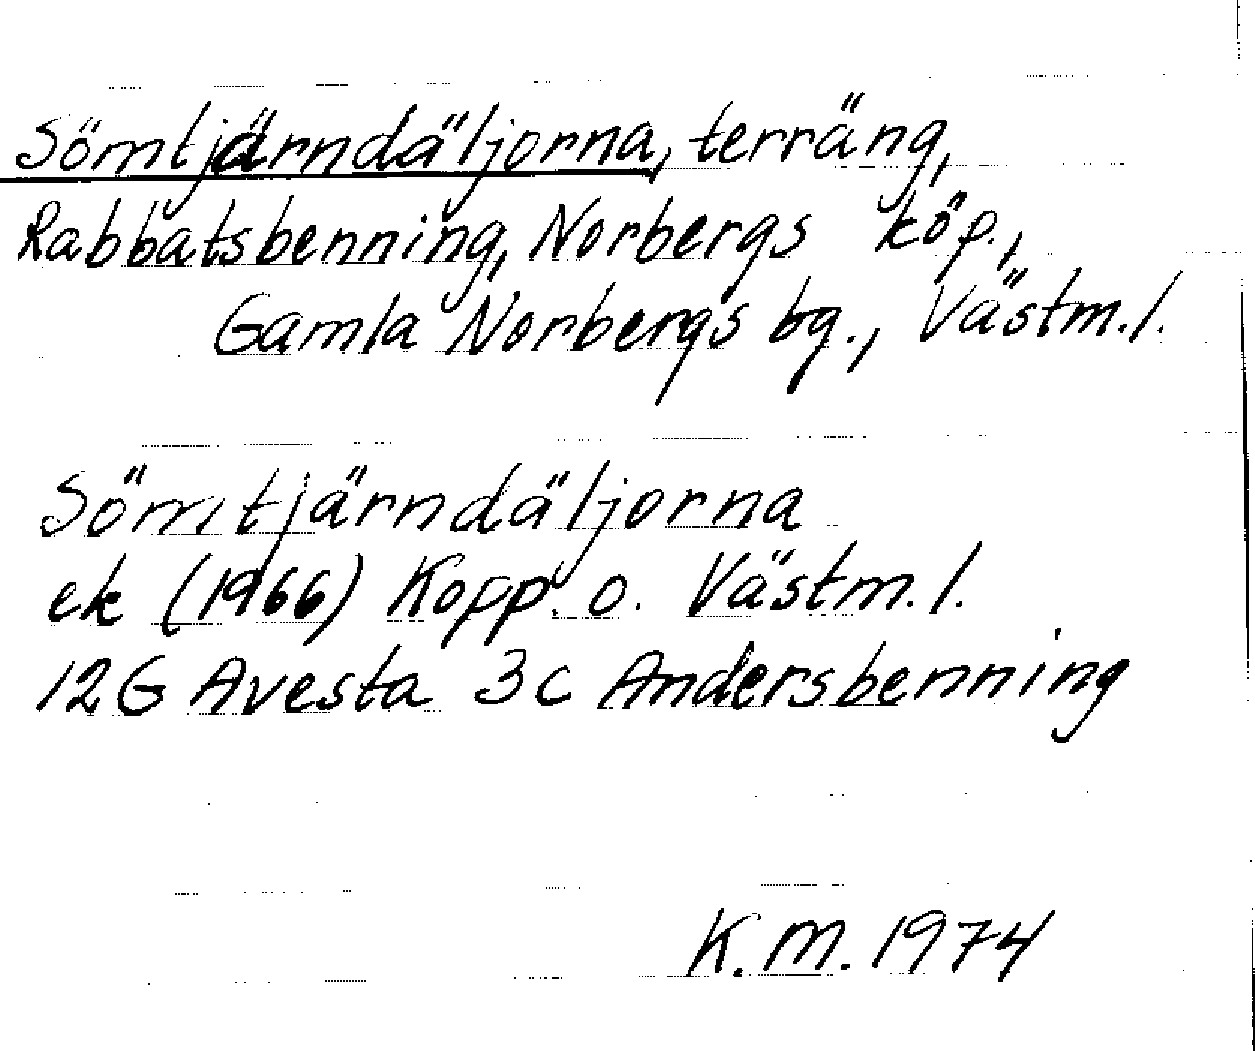 Sömtjärndäljorna, terräng,
Rabbatsbenning, Norbergs köp.,
Gamla Norbergs bg., Västm.l.
Sömtjärndäljorna
ek (1966) Kopp. o. Västm.l.
12G Avesta 3c Andersbenning
K.M. 1974